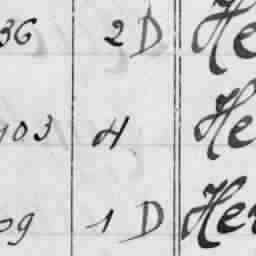 36 2 D He
03 4 He
09 1 D Her